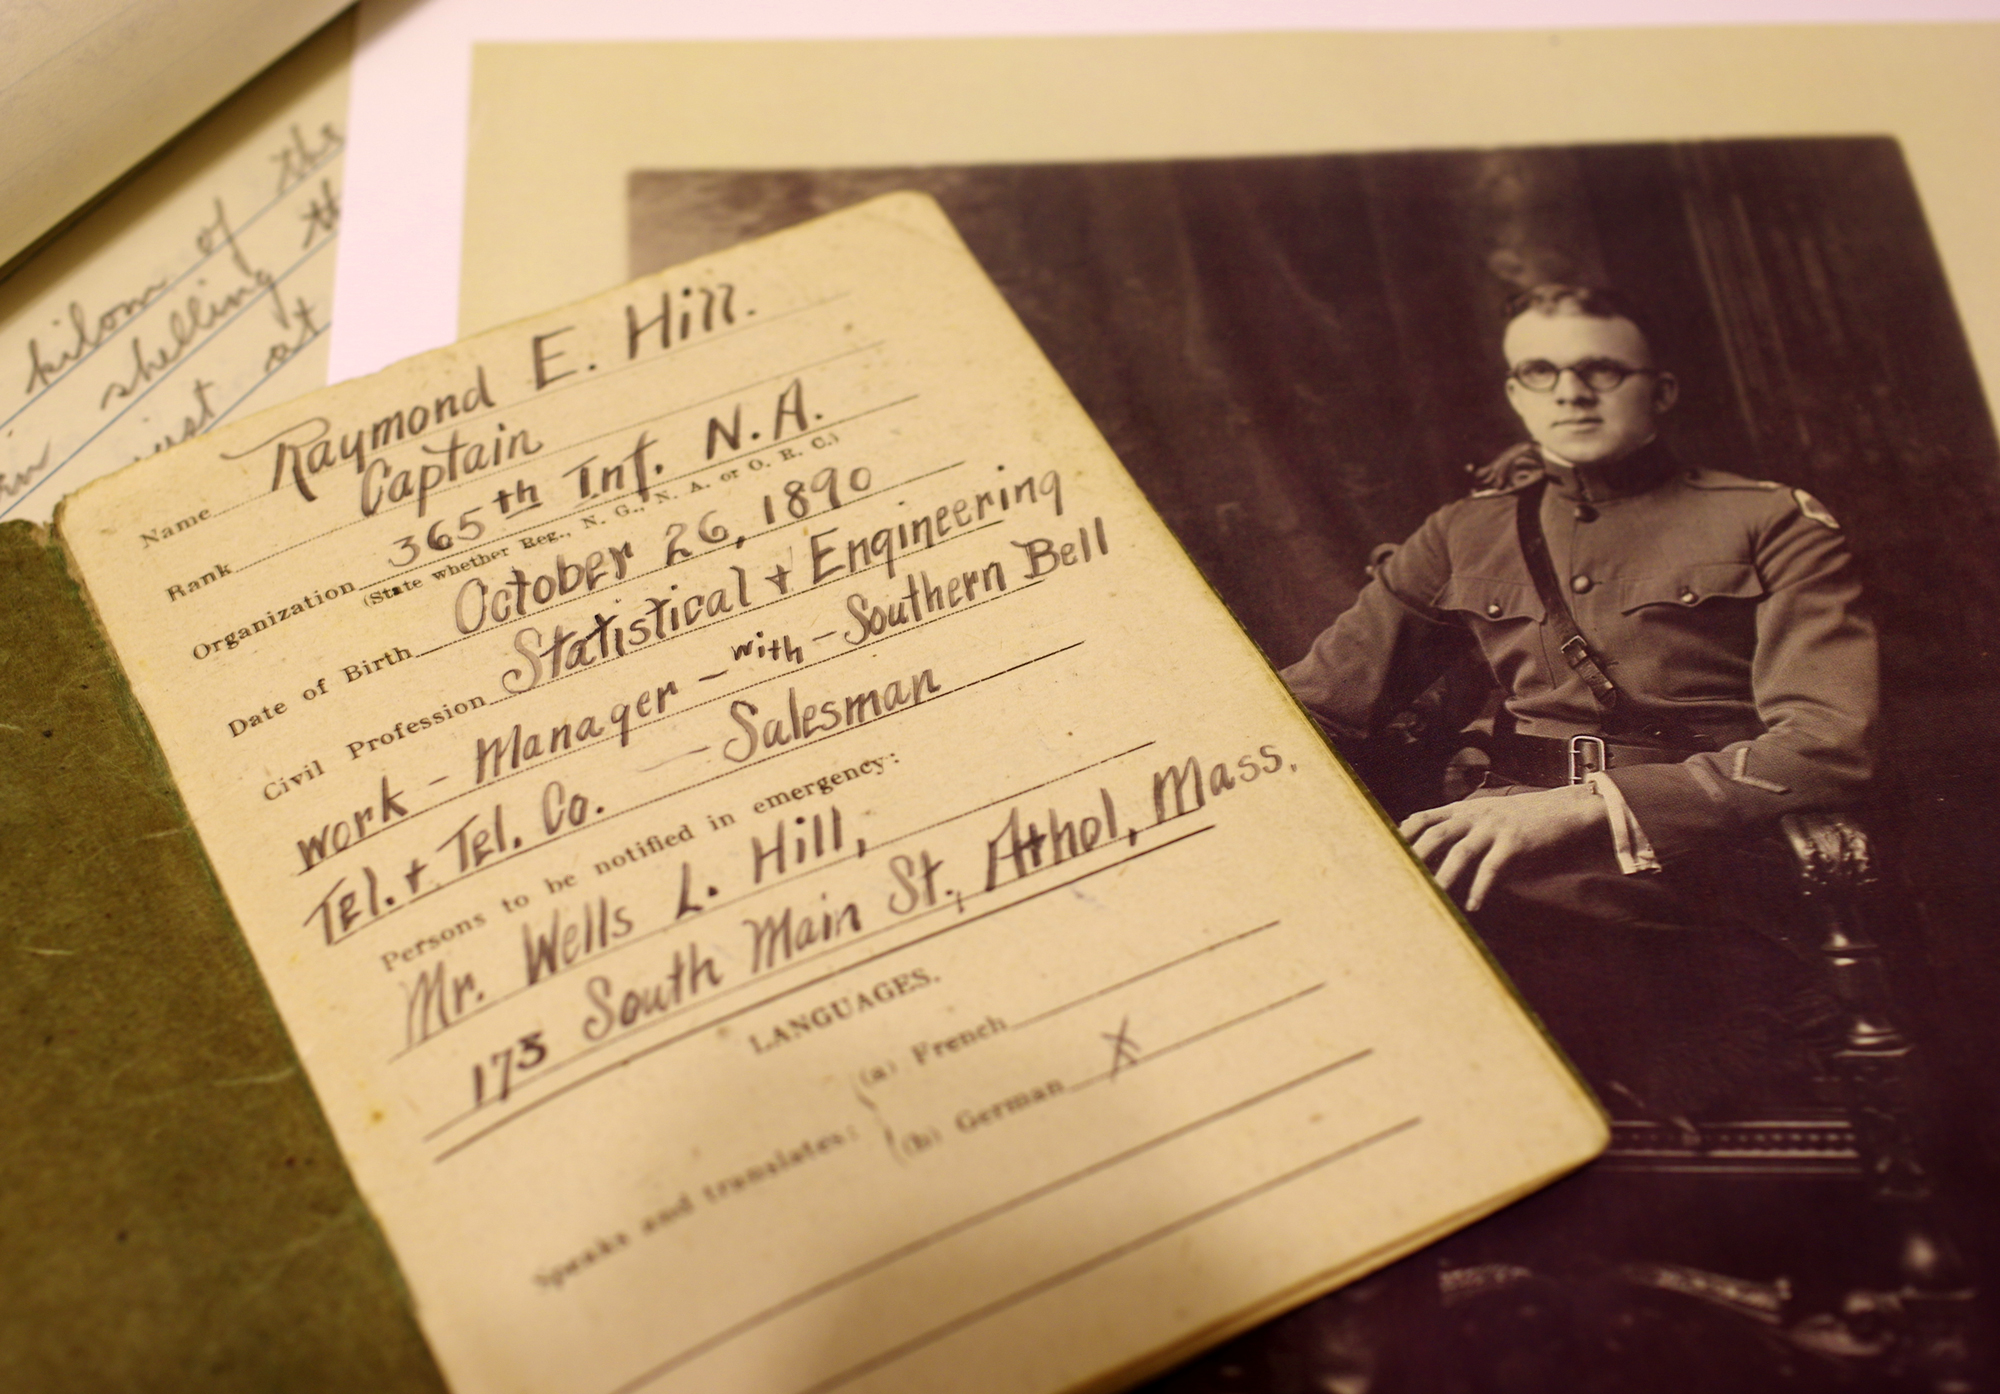 kilom of the
shelling
just at
Name Raymond E. Hill.
Rank Captain
Organization 365th Inf. N.A.
(State whether Reg., N. G., N. A. or O. R. C.)
Date of Birth October 26, 1890
Civil Profession Statistical + Engineering
work - Manager - with - Southern Bell
Tel. + Tel. Co. - Salesman
Persons to be notified in emergency:
Mr. Wells L. Hill,
173 South Main St., Athol, Mass.
LANGUAGES.
Speaks and translates: (a) French
(b) German X